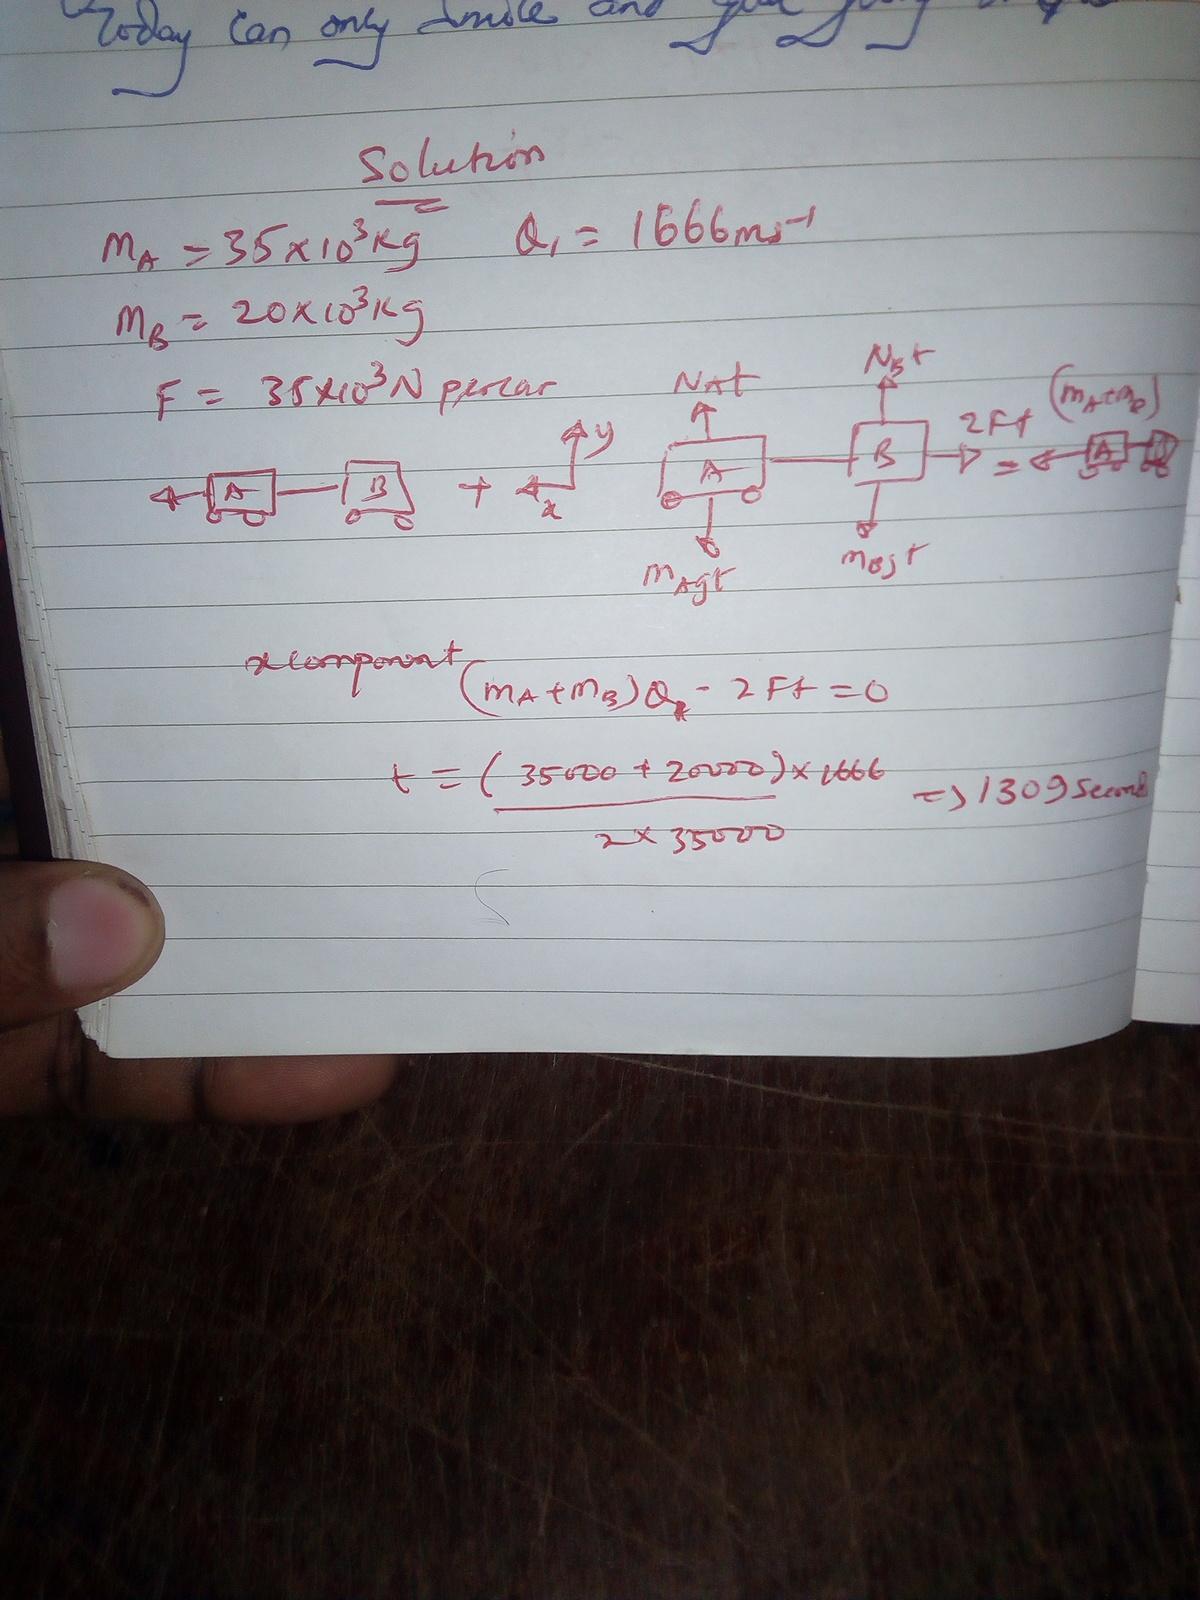 Today can only smile and
Solution
mA = 35×10³kg   Q₁ = 1666ms⁻¹
mB = 20×10³kg
F = 35×10³N percar
A B + x y
NAt NBt 2Ft = (mA+mB)
A B A
mAgt mBgt
x component
(mA+mB)Q₂ - 2Ft = 0
t = (35000 + 20000)×1666 => 1309 Second
2×35000